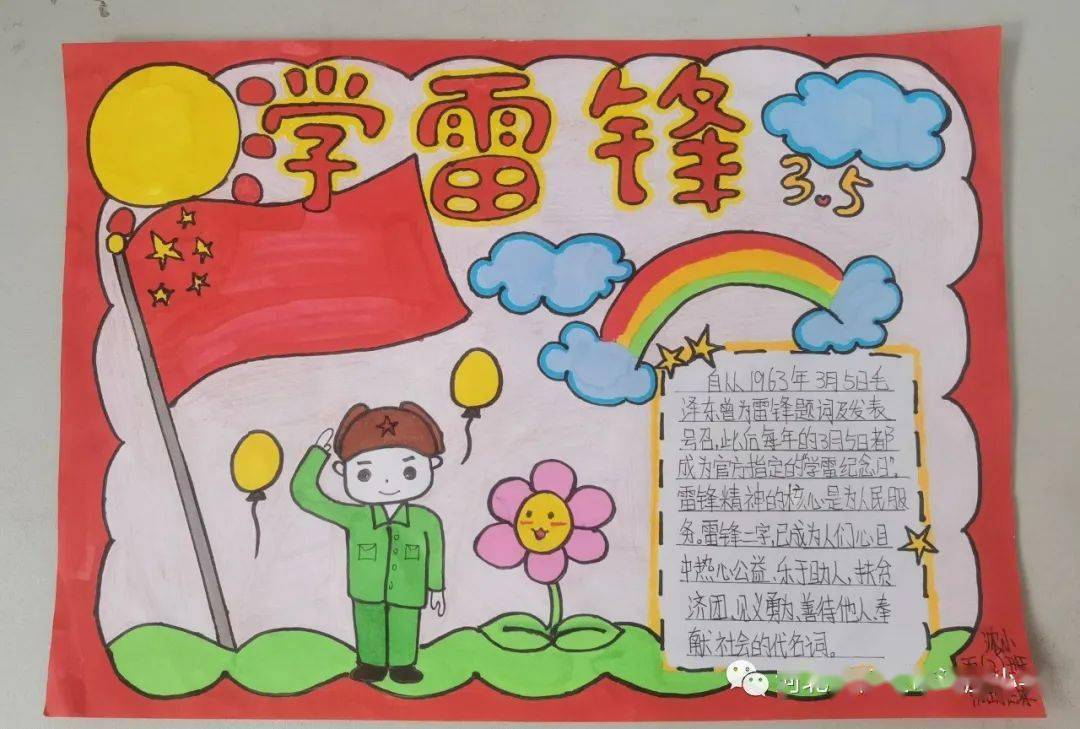 学雷锋
3.5
自从1963年3月5日毛
泽东曾为雷锋题词及发表
号召,此后每年的3月5日都
成为官方指定的"学雷纪念日",
雷锋精神的核心是为人民服
务。雷锋二字,已成为人们心目
中热心公益、乐于助人,扶贫
济团、见义勇为、善待他人、奉
献社会的代名词。